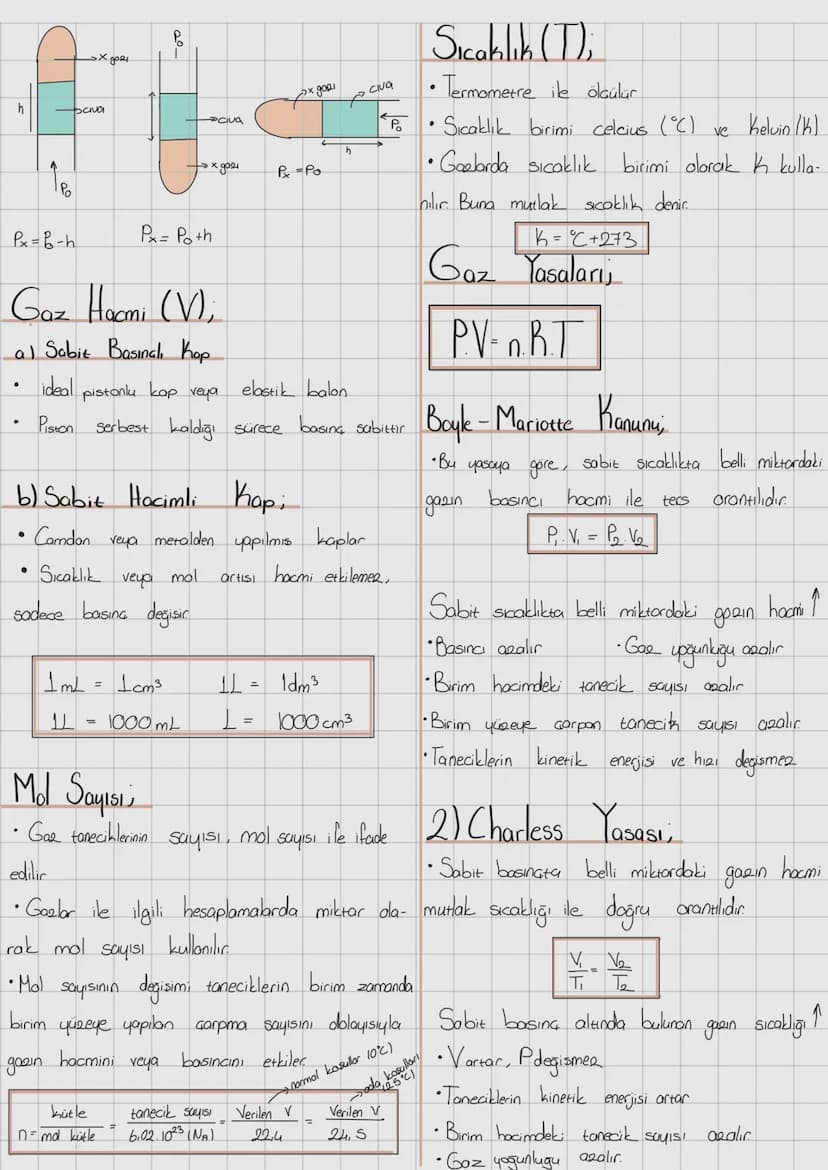 x gazı
civa
h
P₀
Pₓ = P₀ - h
P₀
civa
x gazı
Pₓ = P₀ + h
x gazı
civa
P₀
h
Pₓ = P₀
Gaz Hacmi (V);
a) Sabit Basınçlı Kap
• ideal pistonlu kap veya elastik balon
• Piston serbest kaldığı sürece basınç sabittir
b) Sabit Hacimli Kap;
• Camdan veya metalden yapılmış kaplar
• Sıcaklık veya mol artışı hacmi etkilemez,
sadece basınç değişir
1mL = 1cm³ 1L = 1dm³
1L = 1000 mL L = 1000 cm³
Mol Sayısı;
• Gaz taneciklerinin sayısı, mol sayısı ile ifade
edilir
• Gazlar ile ilgili hesaplamalarda miktar ola-
rak mol sayısı kullanılır.
• Mol sayısının değişimi taneciklerin birim zamanda
birim yüzeye yapılan çarpma sayısını dolayısıyla
gazın hacmini veya basıncını etkiler.
normal koşullar (0°C)
oda koşulları (25°C)
n = kütle / mol kütle = tanecik sayısı / 6,02.10²³ (Nₐ) = Verilen V / 22,4 = Verilen V / 24,5
Sıcaklık (T);
• Termometre ile ölçülür
• Sıcaklık birimi celcius (°C) ve Kelvin (K)
• Gazlarda sıcaklık birimi olarak K kulla-
nılır. Buna mutlak sıcaklık denir.
K = °C + 273
Gaz Yasaları;
P.V = n.R.T
Boyle - Mariotte Kanunu;
• Bu yasaya göre, sabit sıcaklıkta belli miktardaki
gazın basıncı hacmi ile ters orantılıdır.
P₁.V₁ = P₂.V₂
Sabit sıcaklıkta belli miktardaki gazın hacmi ↑
• Basıncı azalır • Gaz yoğunluğu azalır
• Birim hacimdeki tanecik sayısı azalır
• Birim yüzeye çarpan tanecik sayısı azalır.
• Taneciklerin kinetik enerjisi ve hızı değişmez
2) Charless Yasası;
• Sabit basınçta belli miktardaki gazın hacmi
mutlak sıcaklığı ile doğru orantılıdır.
V₁/T₁ = V₂/T₂
Sabit basınç altında bulunan gazın sıcaklığı ↑
• V artar, P değişmez
• Taneciklerin kinetik enerjisi artar
• Birim hacimdeki tanecik sayısı azalır
• Gaz yoğunluğu azalır.